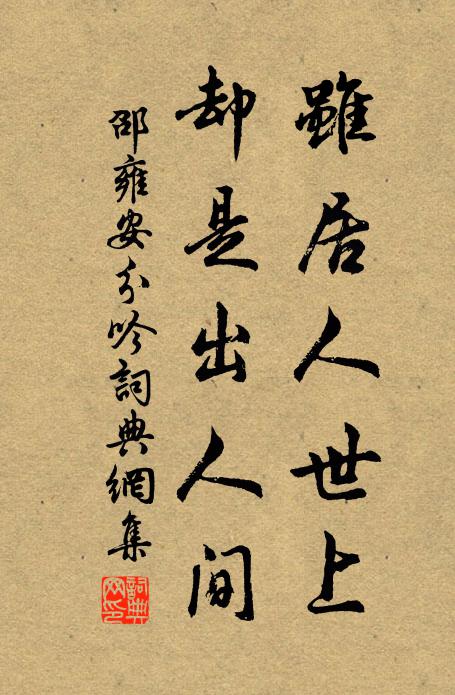 雖居人世上
却是出人間
邵雍安分吟詞典網集
詞典网印